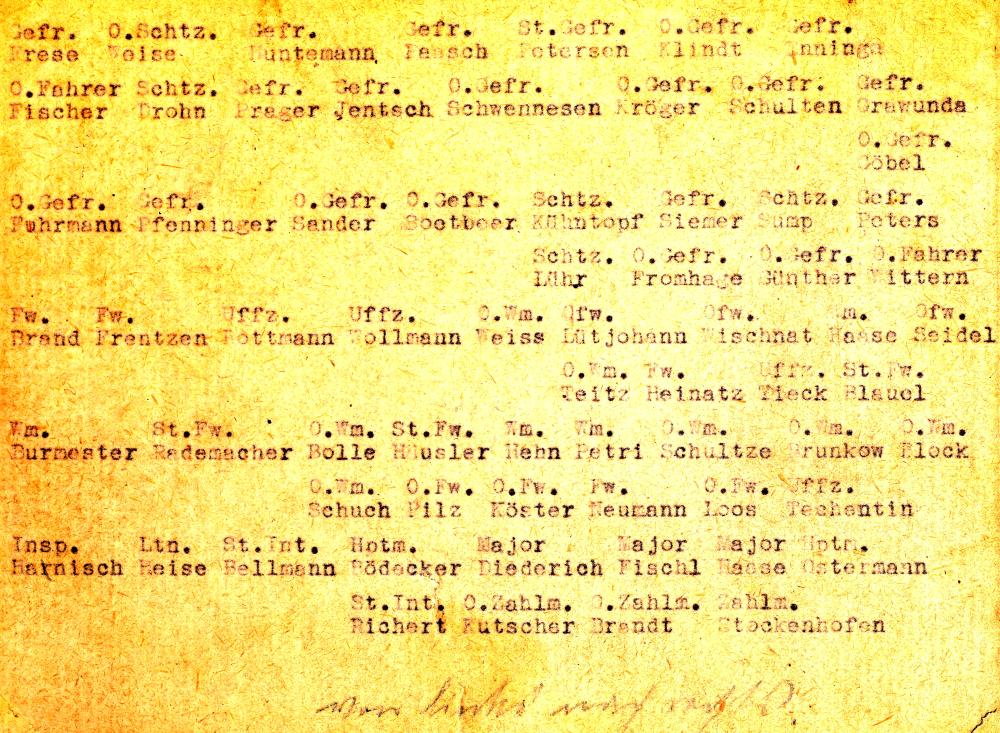 Gefr. O.Schtz. Gefr. Gefr. St.Gefr. O.Gefr. Gefr.
Frese Weise Huntemann Paasch Petersen Klindt
O.Fahrer Schtz. Gefr. Gefr. O.Gefr. O.Gefr. O.Gefr. Gefr.
Fischer Drohn Prager Jentsch Schwennesen Kröger Schulten Grawunda
O.Gefr.
Göbel
O.Gefr. Gefr. O.Gefr. O.Gefr. Schtz. Gefr. Schtz. Gefr.
Fuhrmann Pfenninger Sander Soetbeer Kühntopf Siemer Sump Peters
Schtz. O.Gefr. O.Gefr. O.Fahrer
Lühr Fromhage Günther Wittern
Fw. Fw. Uffz. Uffz. O.Wm. Ofw. Ofw. Wm. Ofw.
Brand Frentzen Wollmann Weiss Lütjohann Wischnat Haase Seidel
O.Wm. Fw. Uffz. St.Fw.
Teitz Heinatz Tieck
Wm. St.Fw. O.Wm. St.Fw. Wm. Wm. O.Wm. O.Wm. O.Wm.
Burmester Rademacher Bolle Häusler Hehn Petri Schultze Brunkow
O.Wm. O.Fw. O.Fw. Fw. O.Fw. Uffz.
Schuch Pilz Köster Neumann Loos Techentin
Insp. Ltn. St.Int. Hptm. Major Major Major Hptm.
Harnisch Heise Bellmann Bödecker Diederich Fischl Haase Ostermann
St.Int. O.Zahlm. O.Zahlm. Zahlm.
Richert Kutscher Brandt Stockenhofen
von links nach rechts